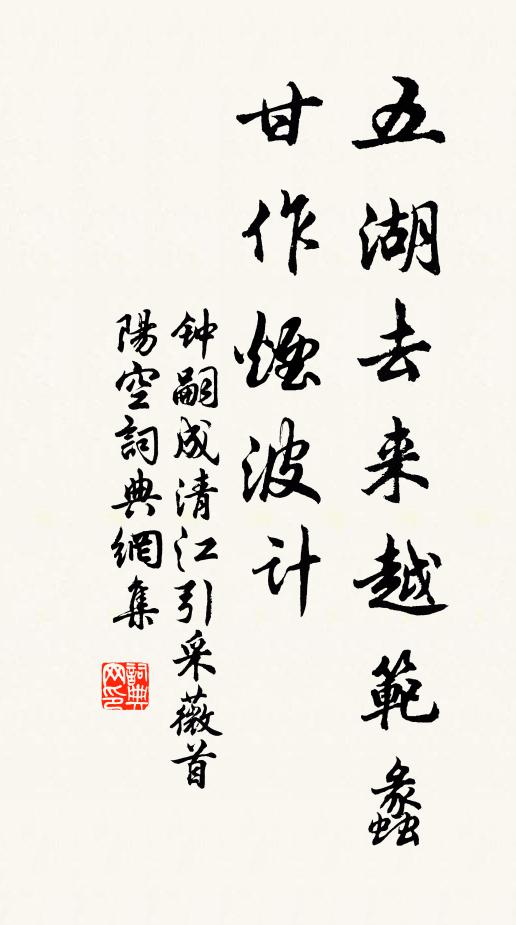 五湖去来越範蠡
甘作煙波計
钟嗣成清江引采薇首
陽空詞典網集
詞典網印